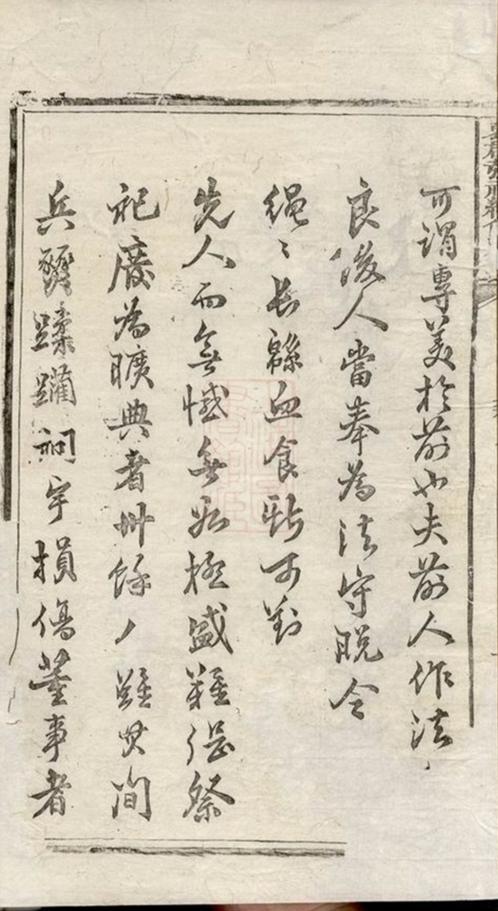 可謂專美於前也夫前人作法
良後人當奉為法守脱令
繩〻長緜血食斯可對
先人而無憾無如極盛難繼祭
祀廢為曠典者卅餘年雖其間
兵燹蹂躪祠宇損傷董事者